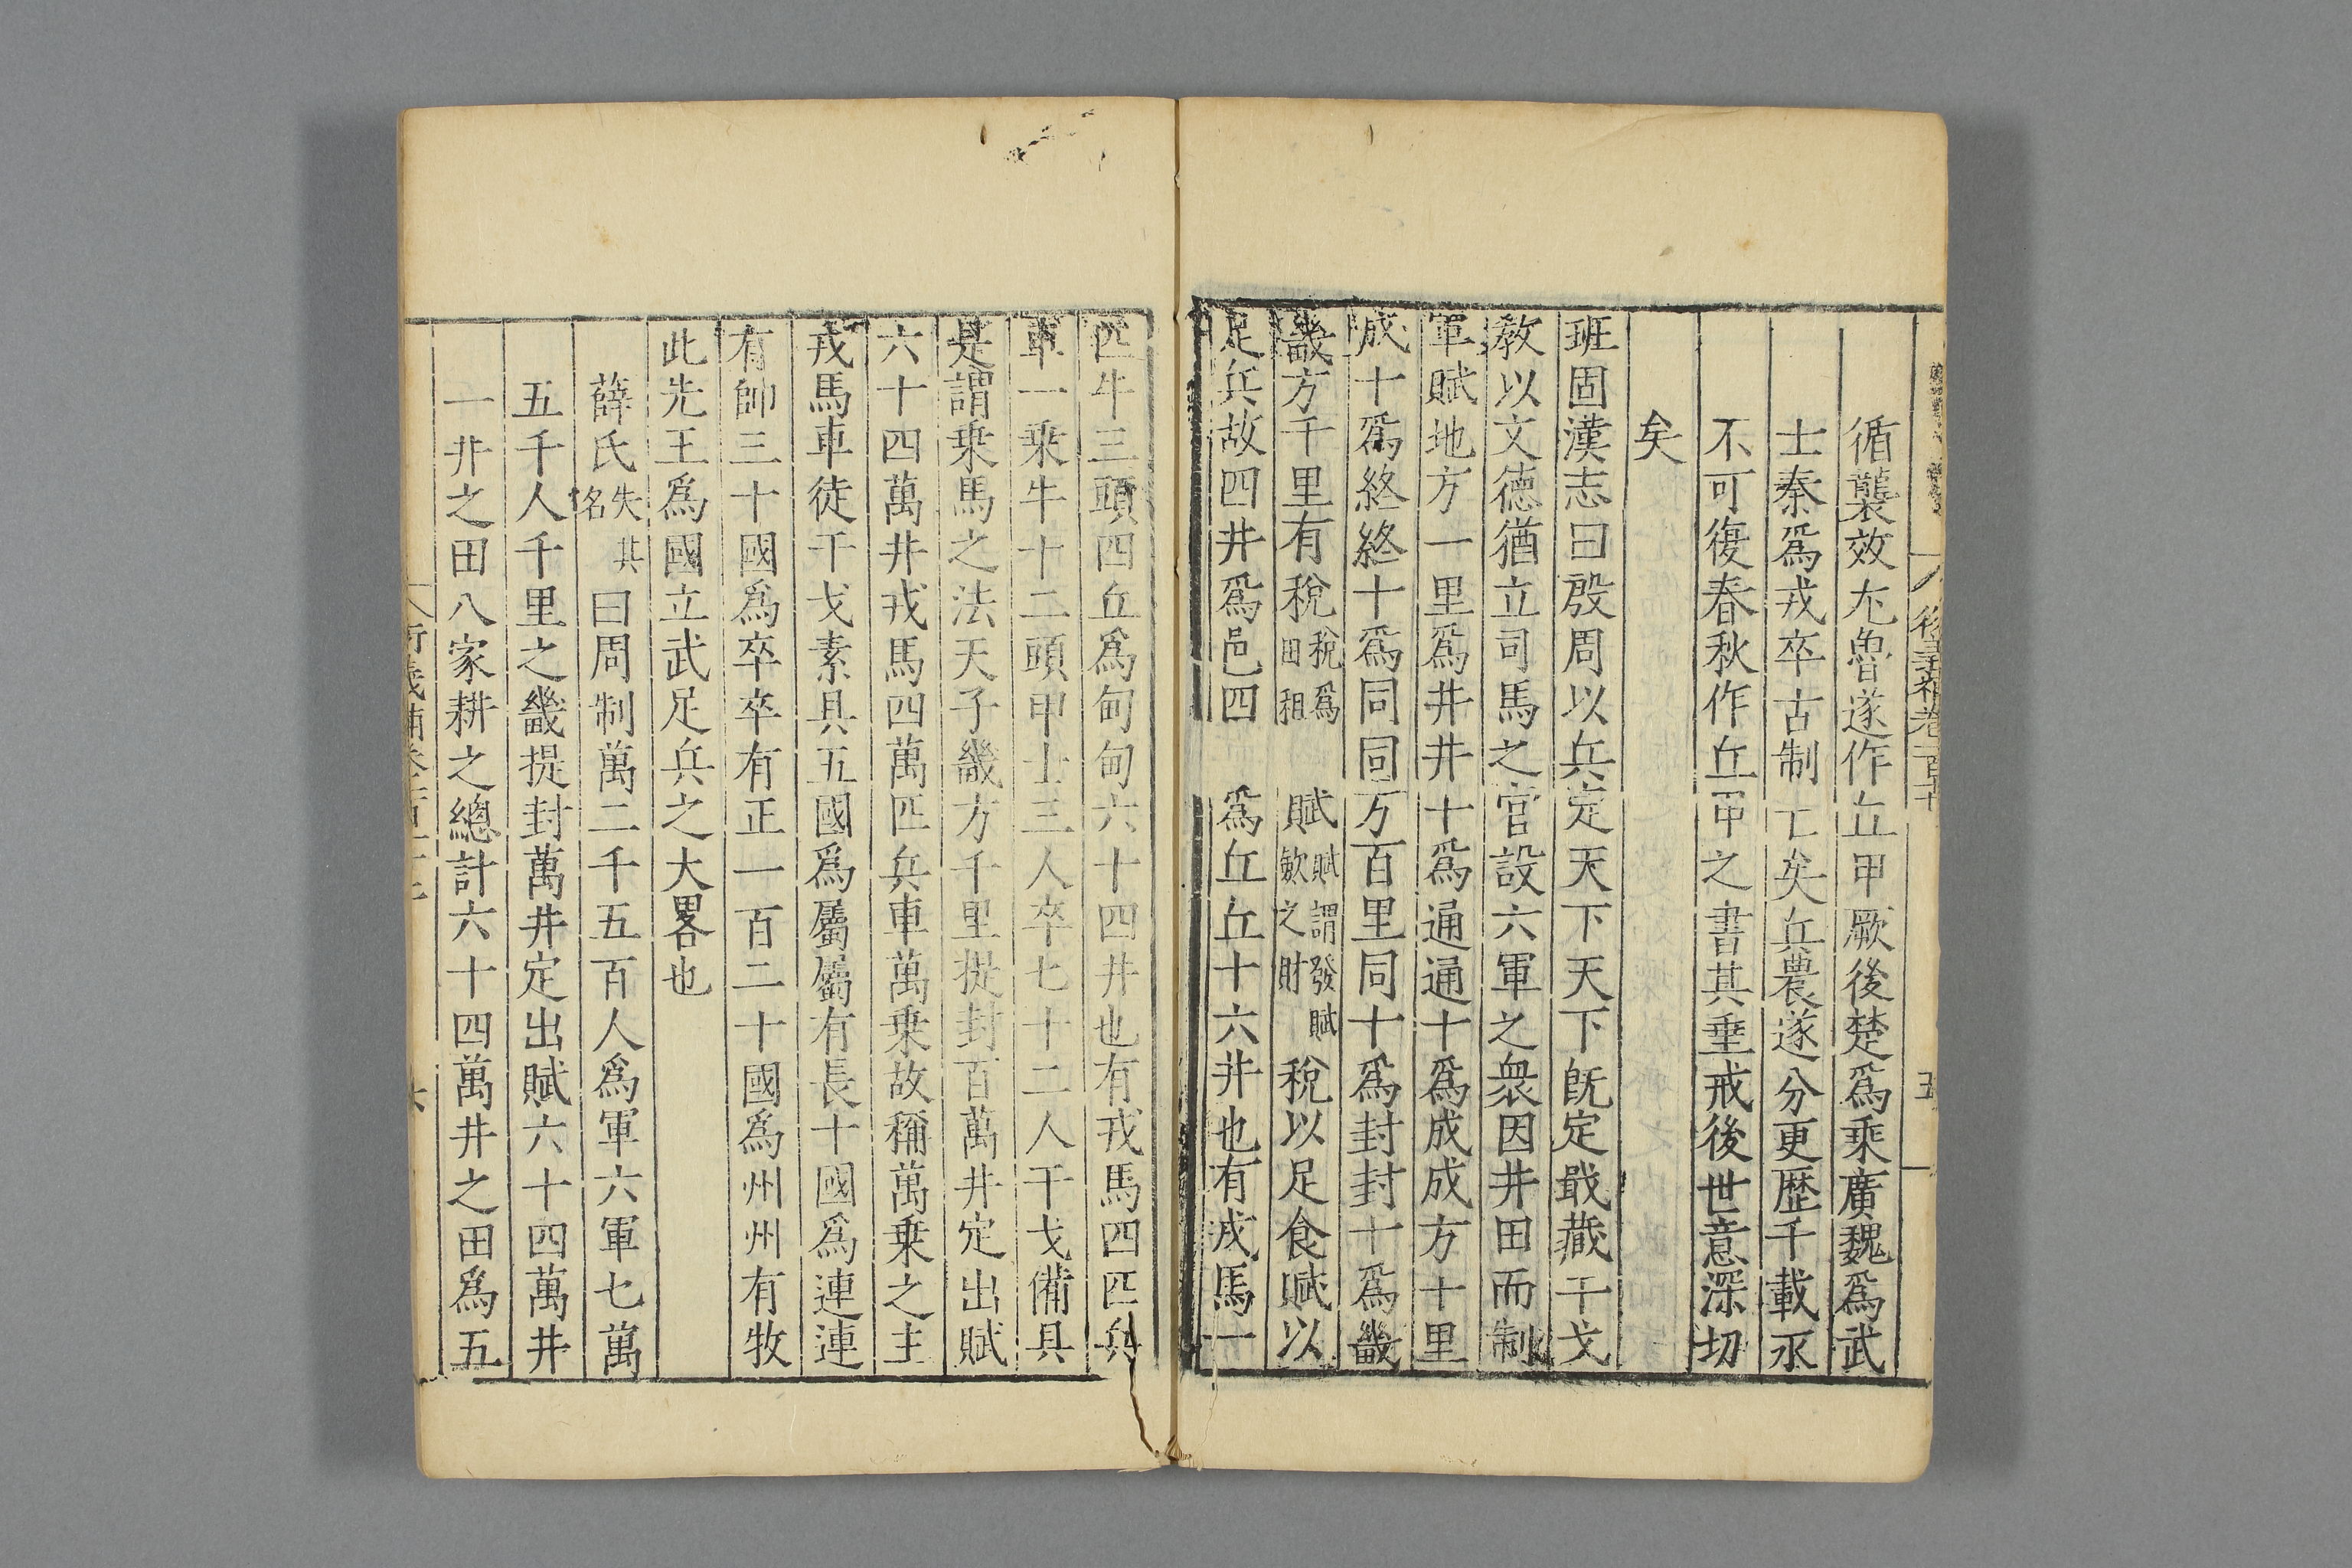 循襲效尤魯遂作丘甲厥後楚爲乘廣魏爲武
士秦爲戎卒古制亡矣兵農遂分更歷千載永
不可復春秋作丘甲之書其垂戒後世意深切
矣
班固漢志曰殷周以兵定天下天下既定戢藏干戈
教以文德猶立司馬之官設六軍之衆因井田而制
軍賦地方一里爲井井十爲通通十爲成成方十里
成十爲終終十爲同同方百里同十爲封封十爲畿
畿方千里有稅稅爲田租賦賦謂發賦斂之財稅以足食賦以
足兵故四井爲邑四爲丘丘十六井也有戎馬一
匹牛三頭四丘爲甸甸六十四井也有戎馬四匹兵
車一乗牛十二頭甲士三人卒七十二人干戈備具
是謂乗馬之法天子畿方千里提封百萬井定出賦
六十四萬井戎馬四萬匹兵車萬乗故稱萬乗之主
戎馬車徒干戈素具五國爲屬屬有長十國爲連連
有帥三十國爲卒卒有正一百二十國爲州州有牧
此先王爲國立武足兵之大畧也
薛氏失其名曰周制萬二千五百人爲軍六軍七萬
五千人千里之畿提封萬井定出賦六十四萬井
一井之田八家耕之總計六十四萬井之田爲五